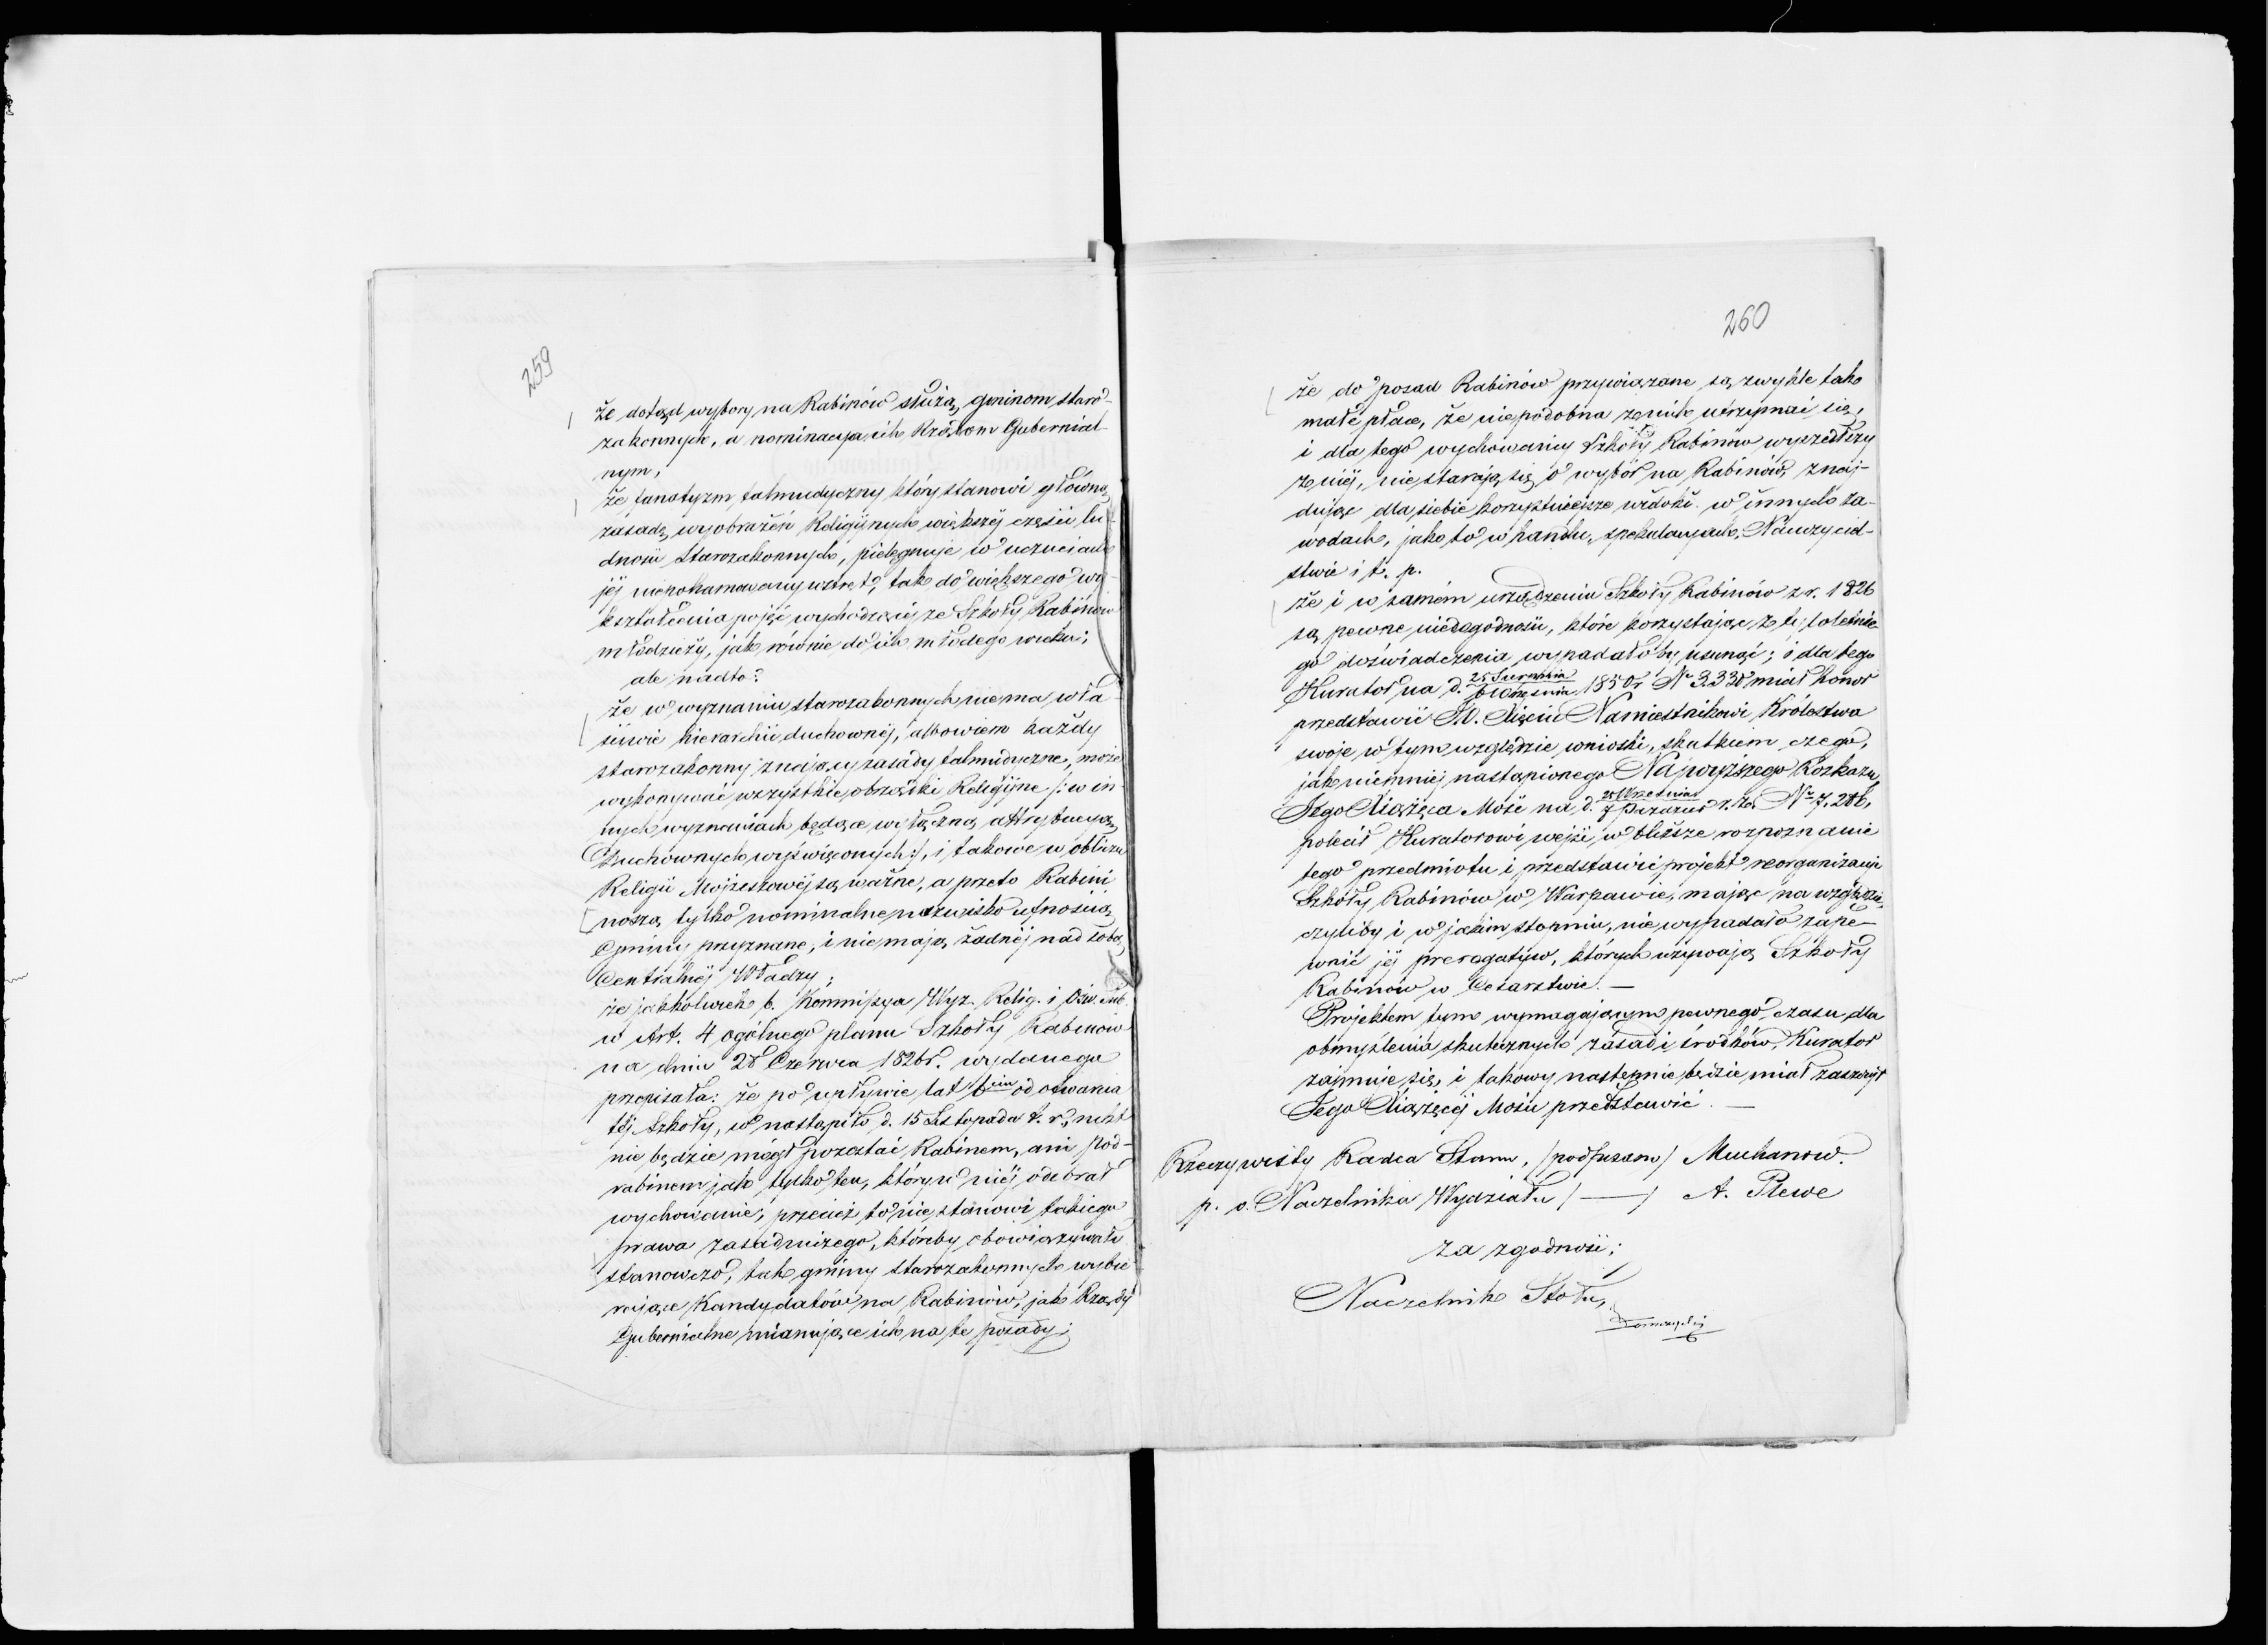 259
że dotąd wybory na Rabinów służą gminom staro-
zakonnych, a nominacya ich Rządom Gubernial-
nym,
że fanatyzm talmudyczny który stanowi główną
zasadę wyobrażeń Religijnych większéj części lu-
dności Starozakonnych, pielęgnuje w uczuciach
jéj niepohamowany wstręt, tak do większego wy-
kształcenia pojęć wychodzącéj ze Szkoły Rabinów
młodzieży, jak równie do ich młodego wieku;
ale nadto:
że w wyznaniu starozakonnych niema wła
ściwie hierarchii duchownéj, albowiem każdy
starozakonny znający zasady talmudyczne, może
wykonywać wszystkie obrządki Religijne /: w in-
nych wyznaniach będące wyłączną attrybucyą
Duchownych wyświęconych :/, i takowe w obliczu
Religii Mojżeszowéj są ważne, a przeto Rabini
noszą tylko nominalne nazwisko ufnością
Gminy przyznane, i nie mają żadnéj nad sobą
Centralnéj Władzy;
że jakkolwiek b. Kommissya Wyz. Relig. i Ośw. Pub.
w Art. 4 ogólnego planu Szkoły Rabinów
na dniu 28 Czerwca 1826 r. wydanego
przepisała: że po upływie lat 6ciu od otwarcia
téj Szkoły, co nastąpiło d. 15 Listopada t. r., nikt
nie będzie mógł pozostać Rabinem, ani Pod-
rabinem jak tylko ten, który w niéj odebrał
wychowanie, przecież to nie stanowi takiego
prawa zasadniczego, któreby obowiązywało
stanowczo, tak gminy starozakonnych wybie
rające Kandydatów na Rabinów, jak Rządy
Gubernialne mianujące ich na te posady;
260
że do posad Rabinów przywiązane są zwykle tak
małe płace, że niepodobna z nich utrzymać się,
i dla tego wychowańcy Szkoły Rabinów wyszedłszy
z niéj, nie starają się o wybór na Rabinów, znaj-
dując dla siebie korzystniejsze widoki w innych za-
wodach, jako to w handlu, spekulacyach, Nauczyciel-
stwie i t. p.
że i w samém urządzeniu Szkoły Rabinów z r. 1826
są pewne niedogodności, które korzystając z tyloletnie
go doświadczenia wypadałoby usunąć; i dla tego
Kurator na d. 25 Sierpnia / 6 Września 1850 r. No 3338 miał honor
przedstawić J.O. Xięciu Namiestnikowi Królestwa
swoje w tym względzie wnioski, skutkiem czego,
jak niemniéj nastąpionego Najwyższego Rozkazu,
Jego Xiążęca Mość na d. 25 Września / 7 Paźdz. r. z. No 7,286,
polecił Kuratorowi wejść w bliższe rozpoznanie
tego przedmiotu i przedstawić projekt reorganizacji
Szkoły Rabinów w Warszawie, mając na względzie,
czyliby i w jakim stopniu, nie wypadało zape-
wnić jéj prerogatyw, których używają Szkoły
Rabinów w Cesarstwie. —
Projektem tym wymagającym pewnego czasu dla
obmyślenia skutecznych zasad i środków, Kurator
zajmuje się, i takowy następnie będzie miał zaszczyt
Jego Xiążęcéj Mości przedstawić. —
Rzeczywisty Radca Stanu, /podpisano/ Muchanow.
p. o. Naczelnika Wydziału / — / A. Plewe
za zgodność;
Naczelnik Stołu,